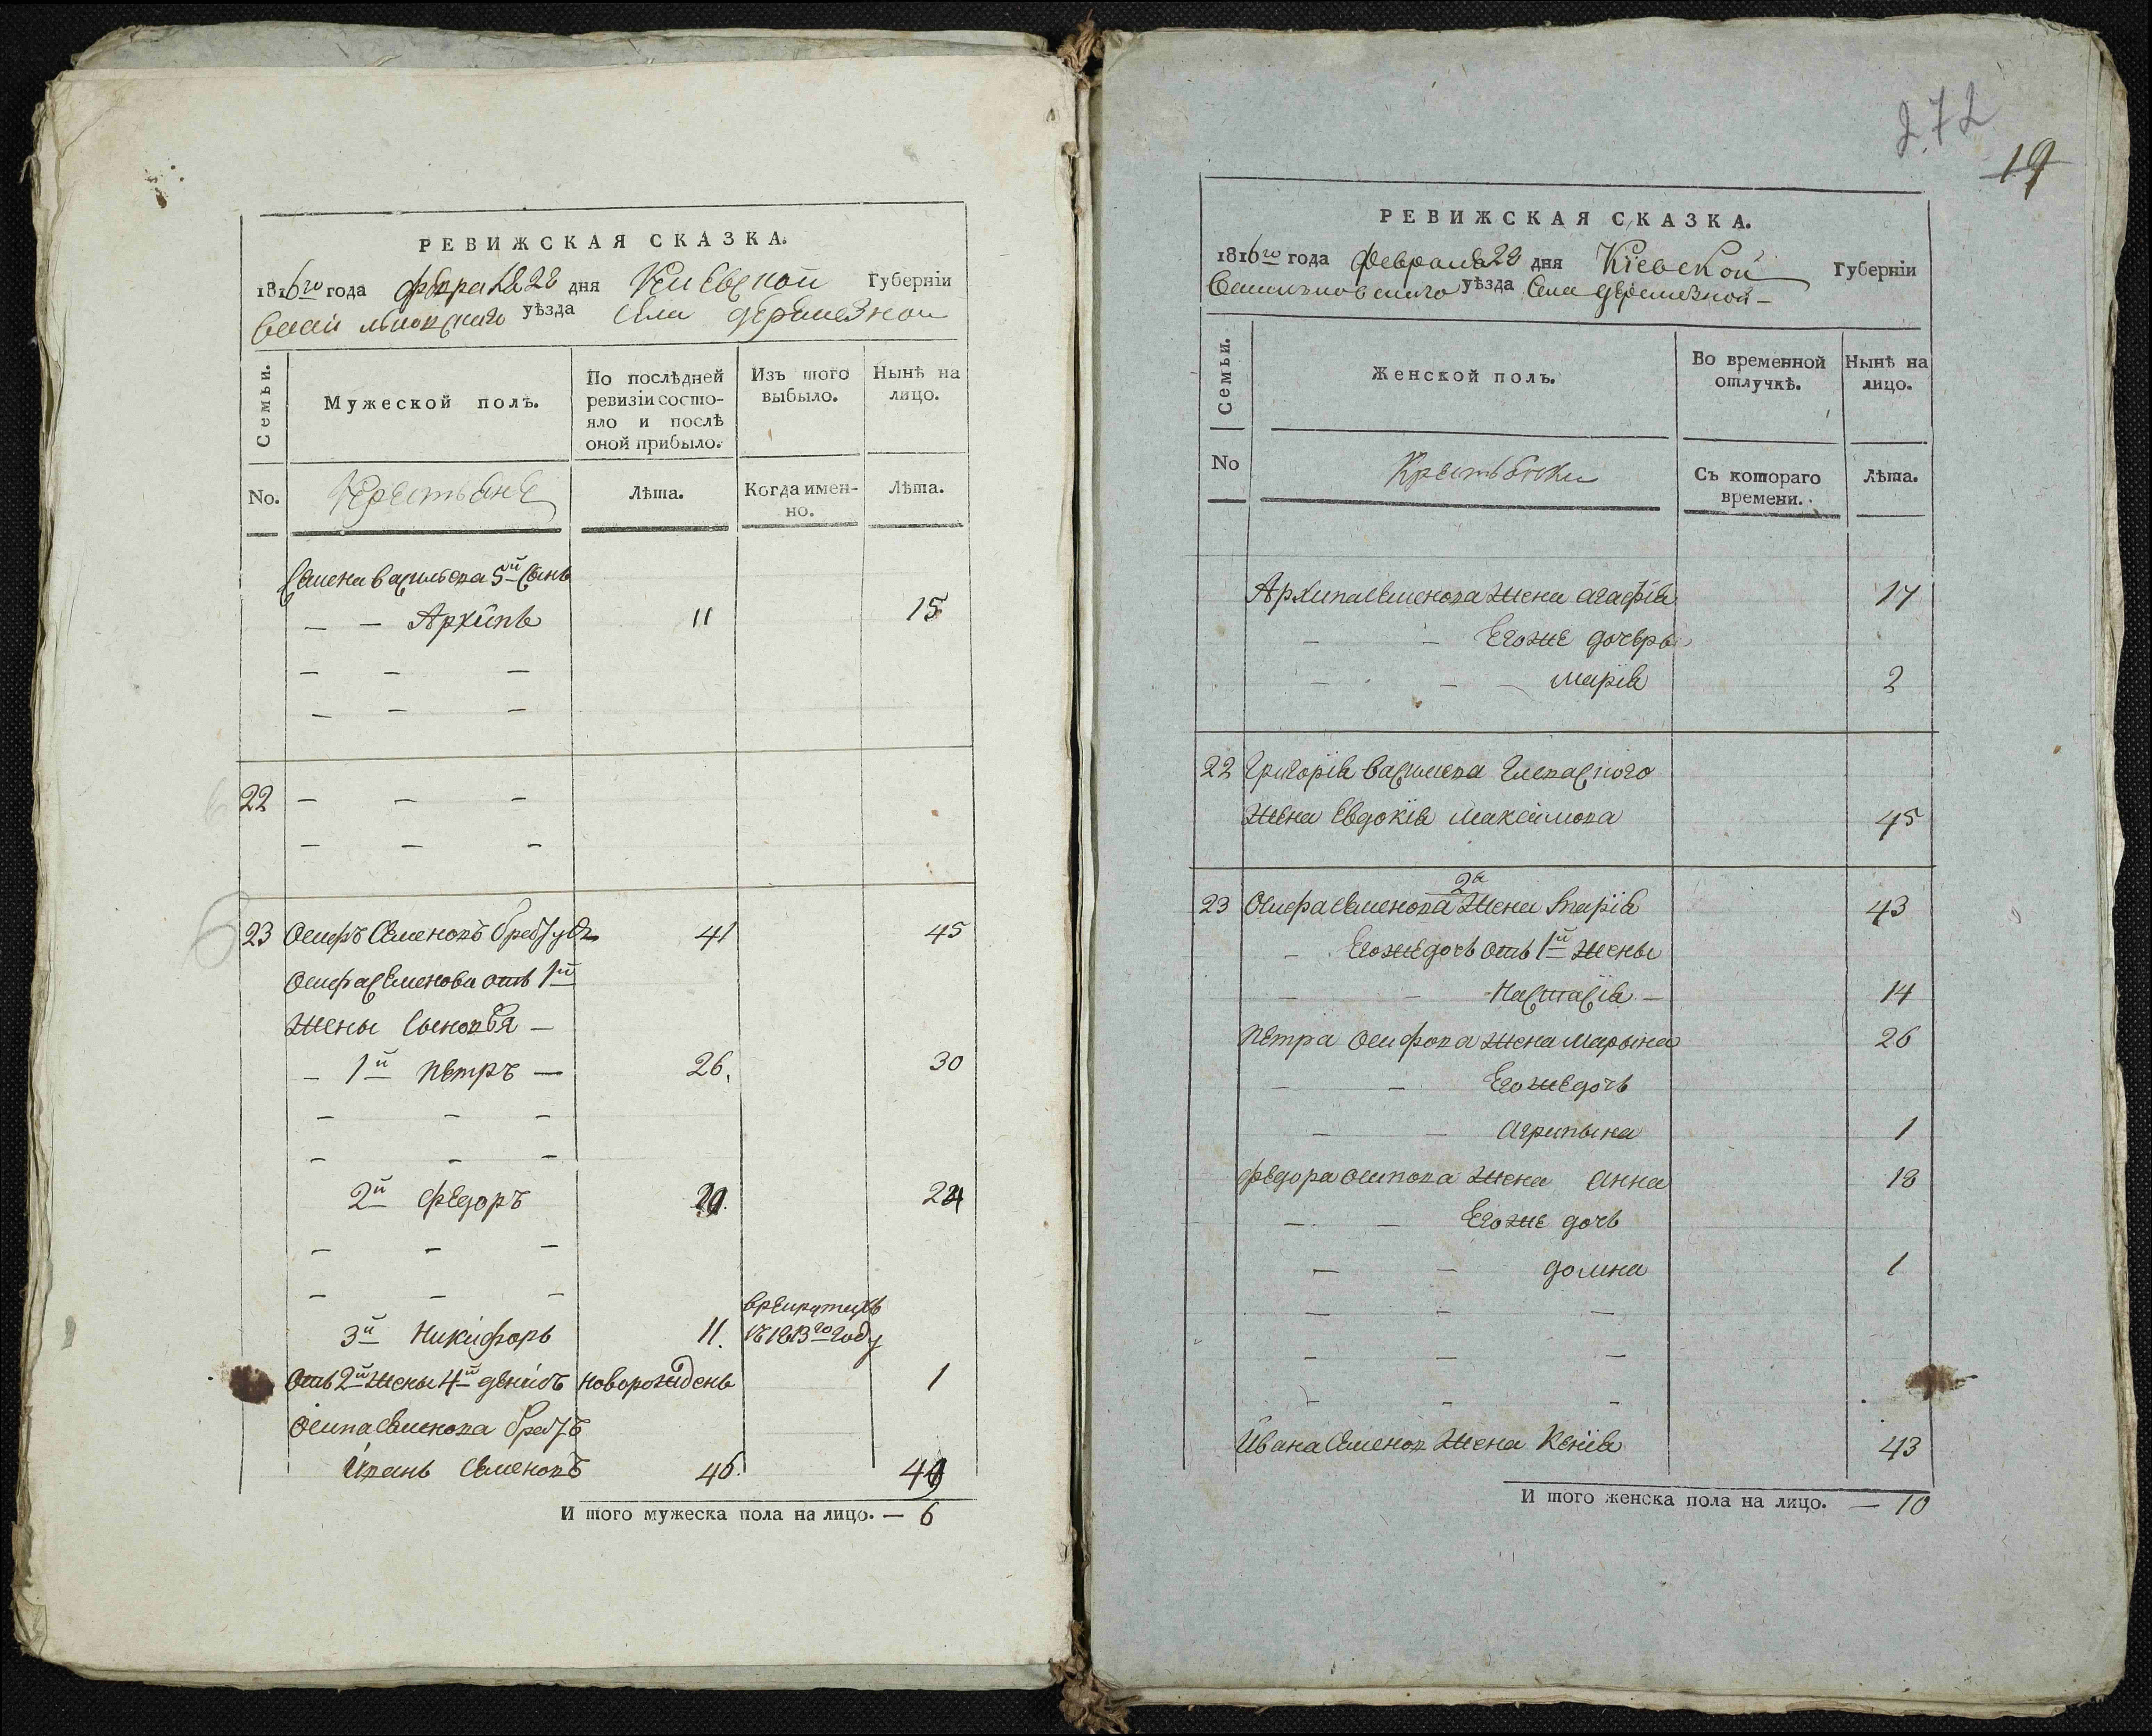 РЕВИЖСКАЯ СКАЗКА.
1816го года февраля 22 дня Киевской Губерніи
уѣзда Села деремезной
Семьи. Мужеской полъ. По послѣдней ревизіи состояло и послѣ оной прибыло. Изъ того выбыло. Нынѣ на лицо.
No. Крестьяне Лѣта. Когда именно. Лѣта.
Семена васильева 5й сынъ
— — Архипъ 11 15
— — —
— — —
22 — — —
— — —
23 Осифъ Семеновъ 41 45
Осифа Семенова отъ 1й
жены сыновья —
— 1й петръ — 26. 30
— — —
— — —
2й федоръ 20. 24
— — —
— — —
врекруты
3й Никифоръ 11. въ 1813го году
отъ 2й жены 4й денисъ новорожденъ 1
Осипа Семенова братъ
Иванъ Семеновъ 46. 49
И того мужеска пола на лицо. — 6
272
19
РЕВИЖСКАЯ СКАЗКА.
1816го года февраля 22 дня Кіевской Губерніи
Васильковского уѣзда Села деремезной —
Семьи. Женской полъ. Во временной отлучкѣ. Нынѣ на лицо.
No Крестьянки Съ котораго времени. Лѣта.
Архипа Семенова жена агафія 17
— — Егоже дочерь
— — марія 2
22 григорія василева
жена Евдокія максимова 45
2я
23 Осифа Семенова жена марія 43
— Егоже дочь отъ 1й жены
— — Настасія — 14
петра осифова жена марына 26
— — Егоже дочь
— — агрипына 1
федора осипова жена анна 18
— — Егоже дочь
— — домна 1
— — —
— — —
— — —
Ивана Семенов жена Ксенія 43
И того женска пола на лицо. — 10